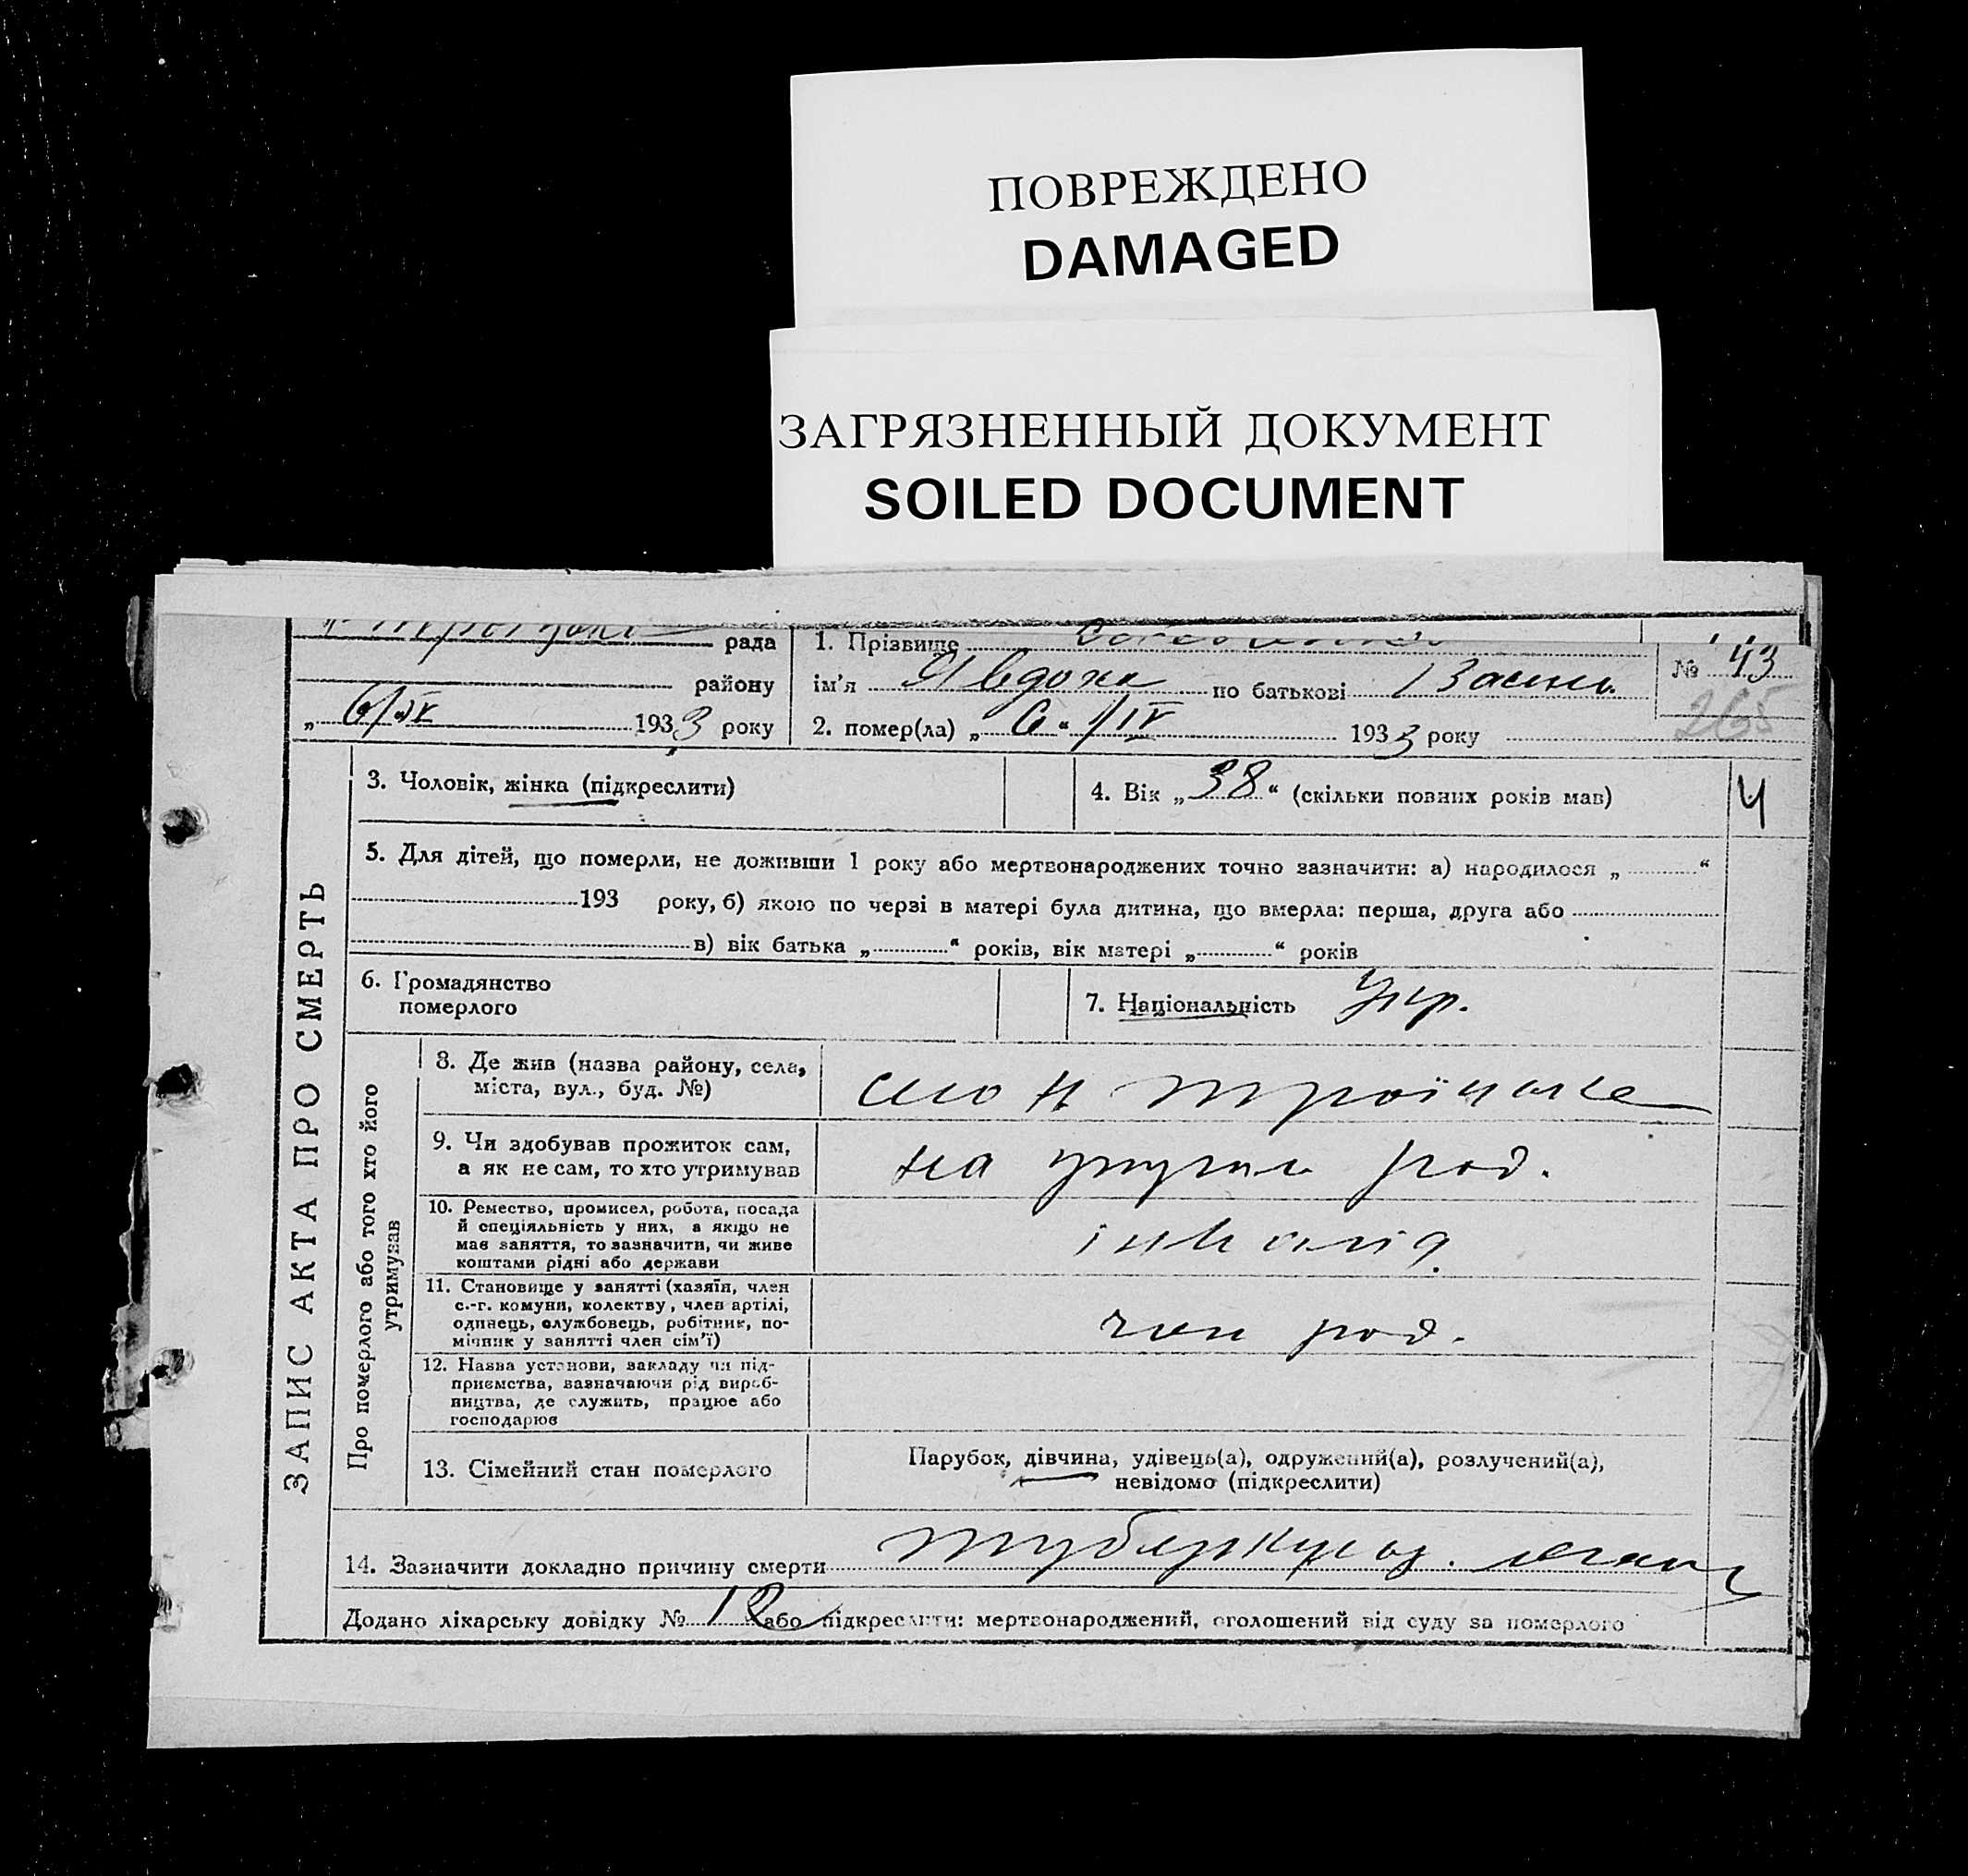 ПОВРЕЖДЕНО
DAMAGED
ЗАГРЯЗНЕННЫЙ ДОКУМЕНТ
SOILED DOCUMENT
рада
1. Прізвище
№ 43
району
ім'я Явдоха по батькові
265
„ 6/IV 1933 року
2. помер(ла) „ 6 “ /IV 1933 року
ЗАПИС АКТА ПРО СМЕРТЬ
3. Чоловік, жінка (підкреслити)
4. Вік „ 38 “ (скільки повних років мав)
Ч
5. Для дітей, що померли, не доживши 1 року або мертвонароджених точно зазначити: а) народилося „ “
193 року, б) якою по черзі в матері була дитина, що вмерла: перша, друга або
в) вік батька „ “ років, вік матері „ “ років
6. Громадянство
померлого
7. Національність Укр.
Про померлого або того хто його
утримував
8. Де жив (назва району, села,
міста, вул., буд. №)
село Н Троїцьке
9. Чи здобував прожиток сам,
а як не сам, то хто утримував
на утрим род.
10. Ремество, промисел, робота, посада
й спеціяльність у них, а якщо не
має заняття, то зазначити, чи живе
коштами рідні або держави
інвалід
11. Становище у занятті (хазяїн, член
с.-г. комуни, колективу, член артілі,
одинець, службовець, робітник, по-
мічник у занятті член сім'ї)
член род.
12. Назва установи, закладу чи під-
приємства, зазначаючи рід вироб-
ництва, де служить, працює або
господарює
13. Сімейний стан померлого
Парубок, дівчина, удівець(а), одружений(а), розлучений(а),
невідомо (підкреслити)
14. Зазначити докладно причину смерти туберкульоз. леган
Додано лікарську довідку № 12 або підкреслити: мертвонароджений, оголошений від суду за померлого